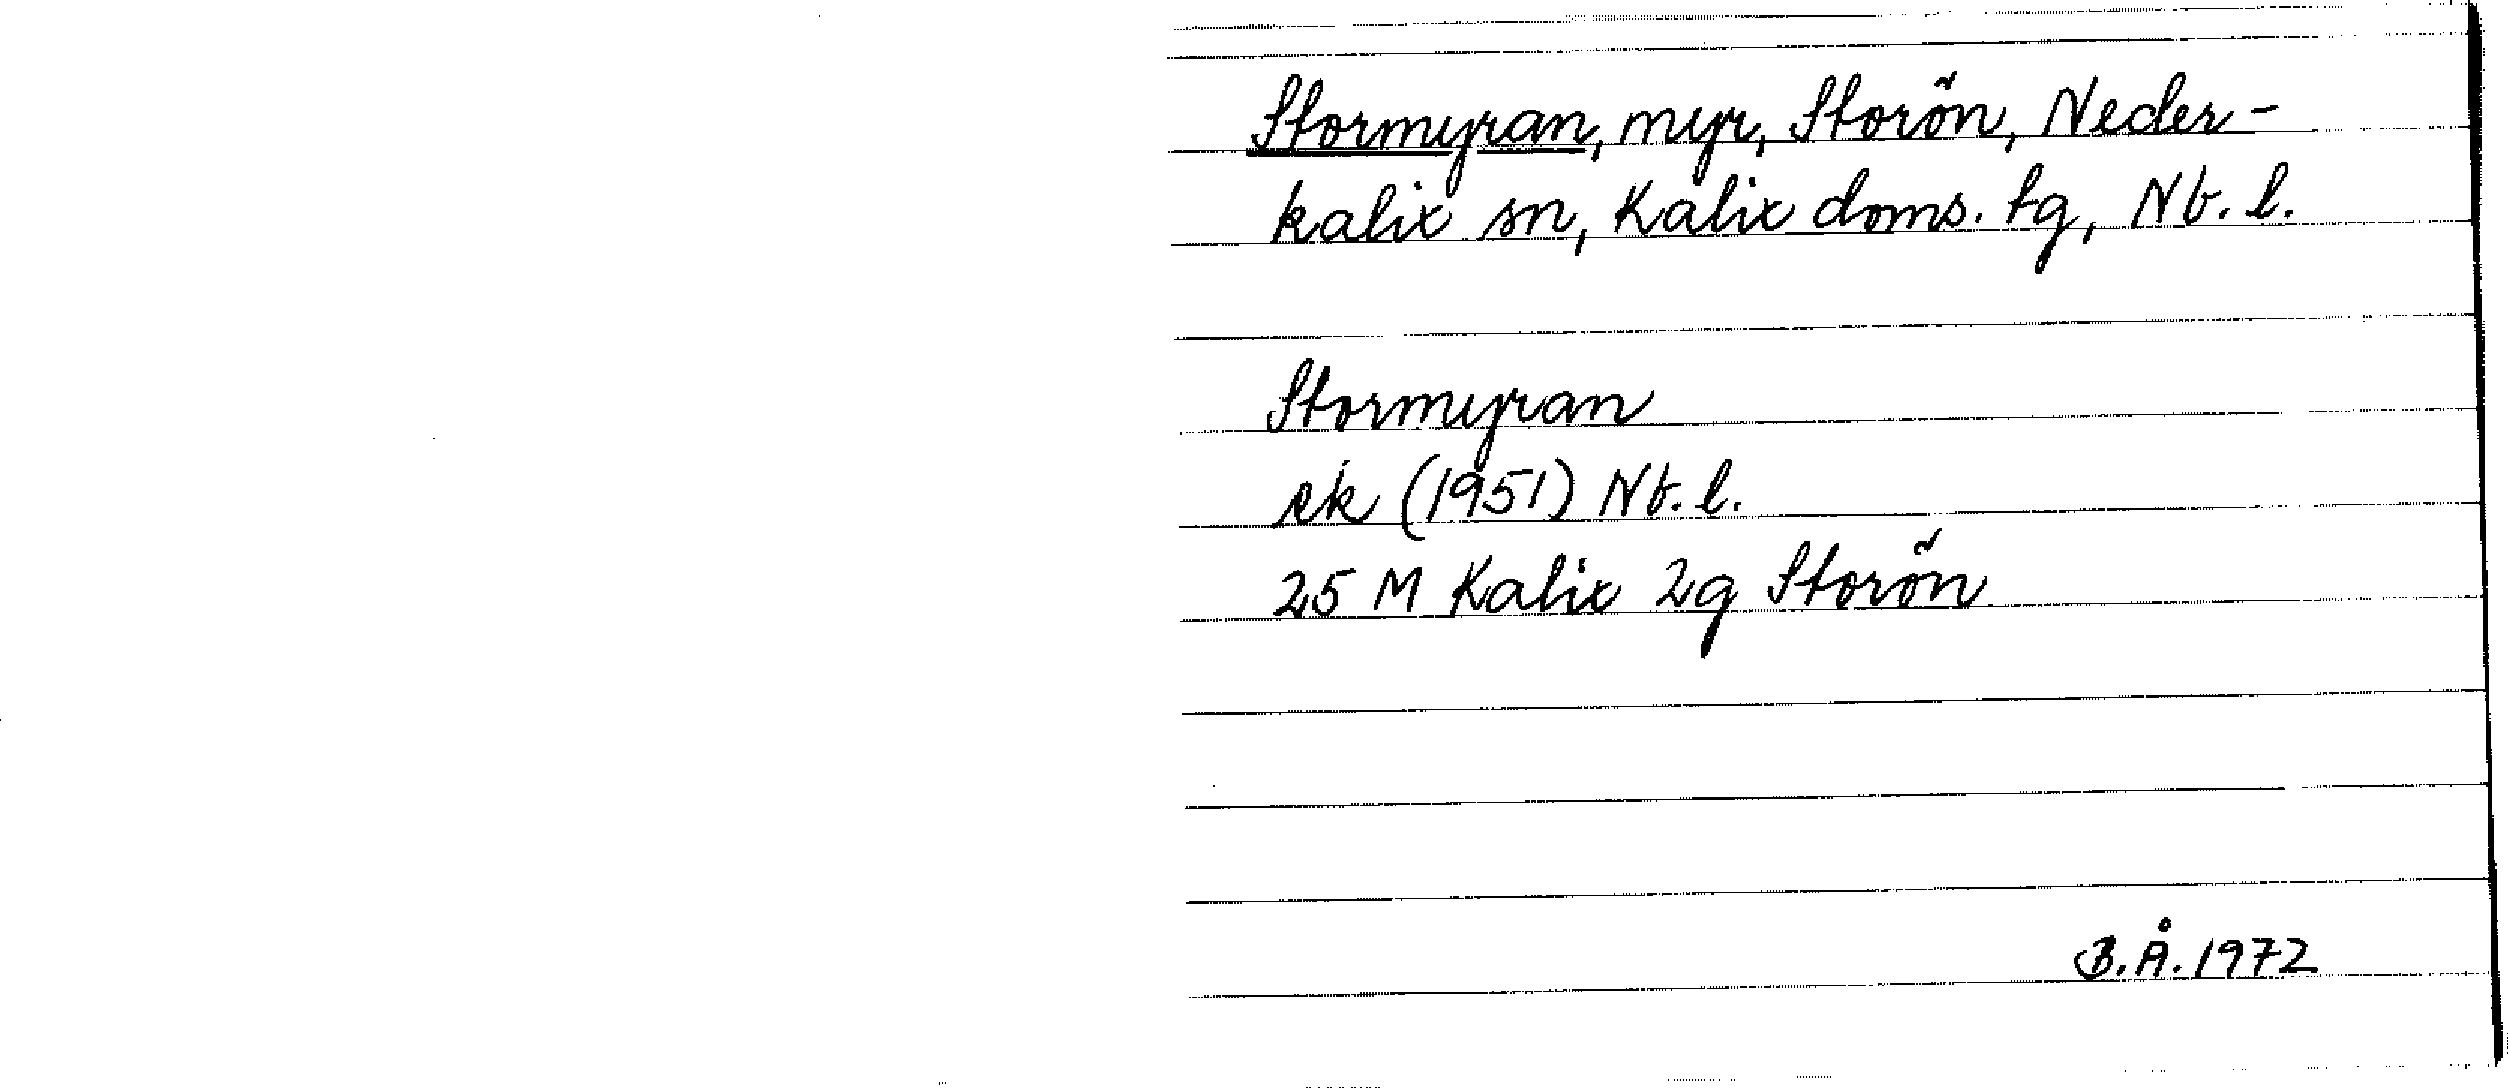 Stormyran, myr, Storön, Neder-
kalix sn, Kalix doms. tg, Nb. l.
Stormyran
ek (1951) Nb. l.
25 M Kalix 2g Storön
B.Å. 1972